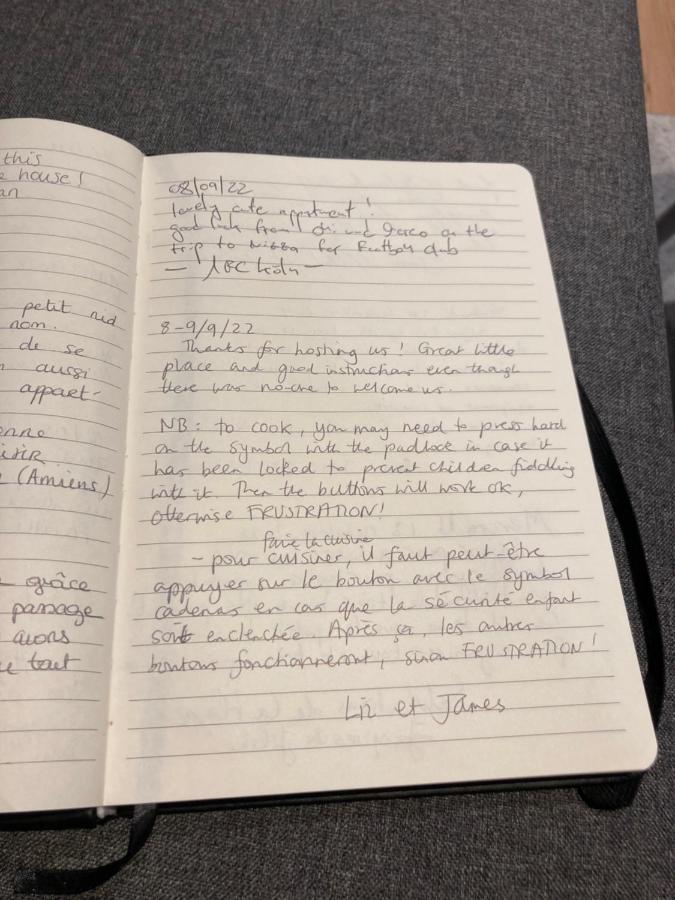 this
e house!
an
petit nid
nom.
de se
aussi
appart-
enne
(Amiens)
grâce
passage
avons
tout
08/09/22
lovely cute appartment!
good luck from and on the
trip to for football club
8-9/9/22
Thanks for hosting us! Great little
place and good instructions even though
there was no-one to welcome us.
NB: to cook, you may need to press hard
on the symbol with the padlock in case it
has been locked to prevent children fiddling
with it. Then the buttons will work ok,
otherwise FRUSTRATION!
faire la cuisine
- pour cuisiner, il faut peut-être
appuyer sur le bouton avec le symbol
cadenas en cas que la sécurité enfant
soit enclenchée. Après ça, les autres
boutons fonctionneront, sinon FRUSTRATION!
Liz et James